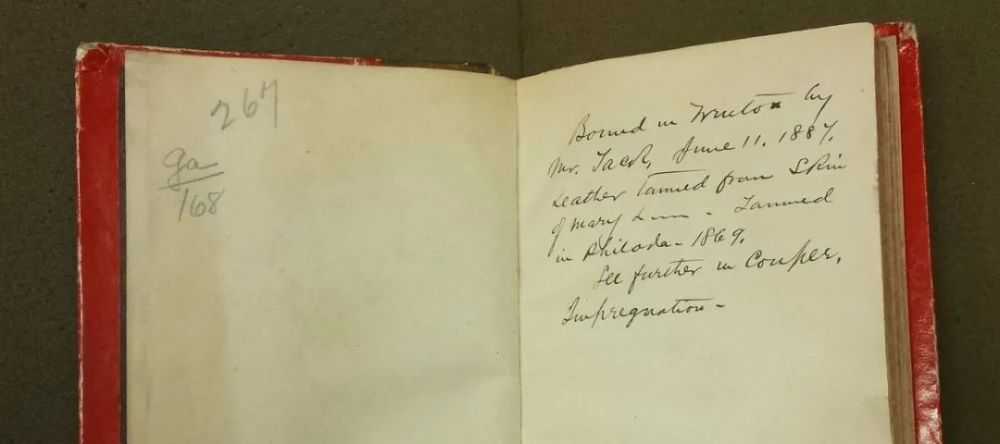 267
Ga
168
Bound in Trenton by
Mr. Jacob, June 11, 1887.
Leather Tanned from Skin
of Mary Lynn - Tanned
in Philada - 1869.
See further in Couper,
Impregnation -